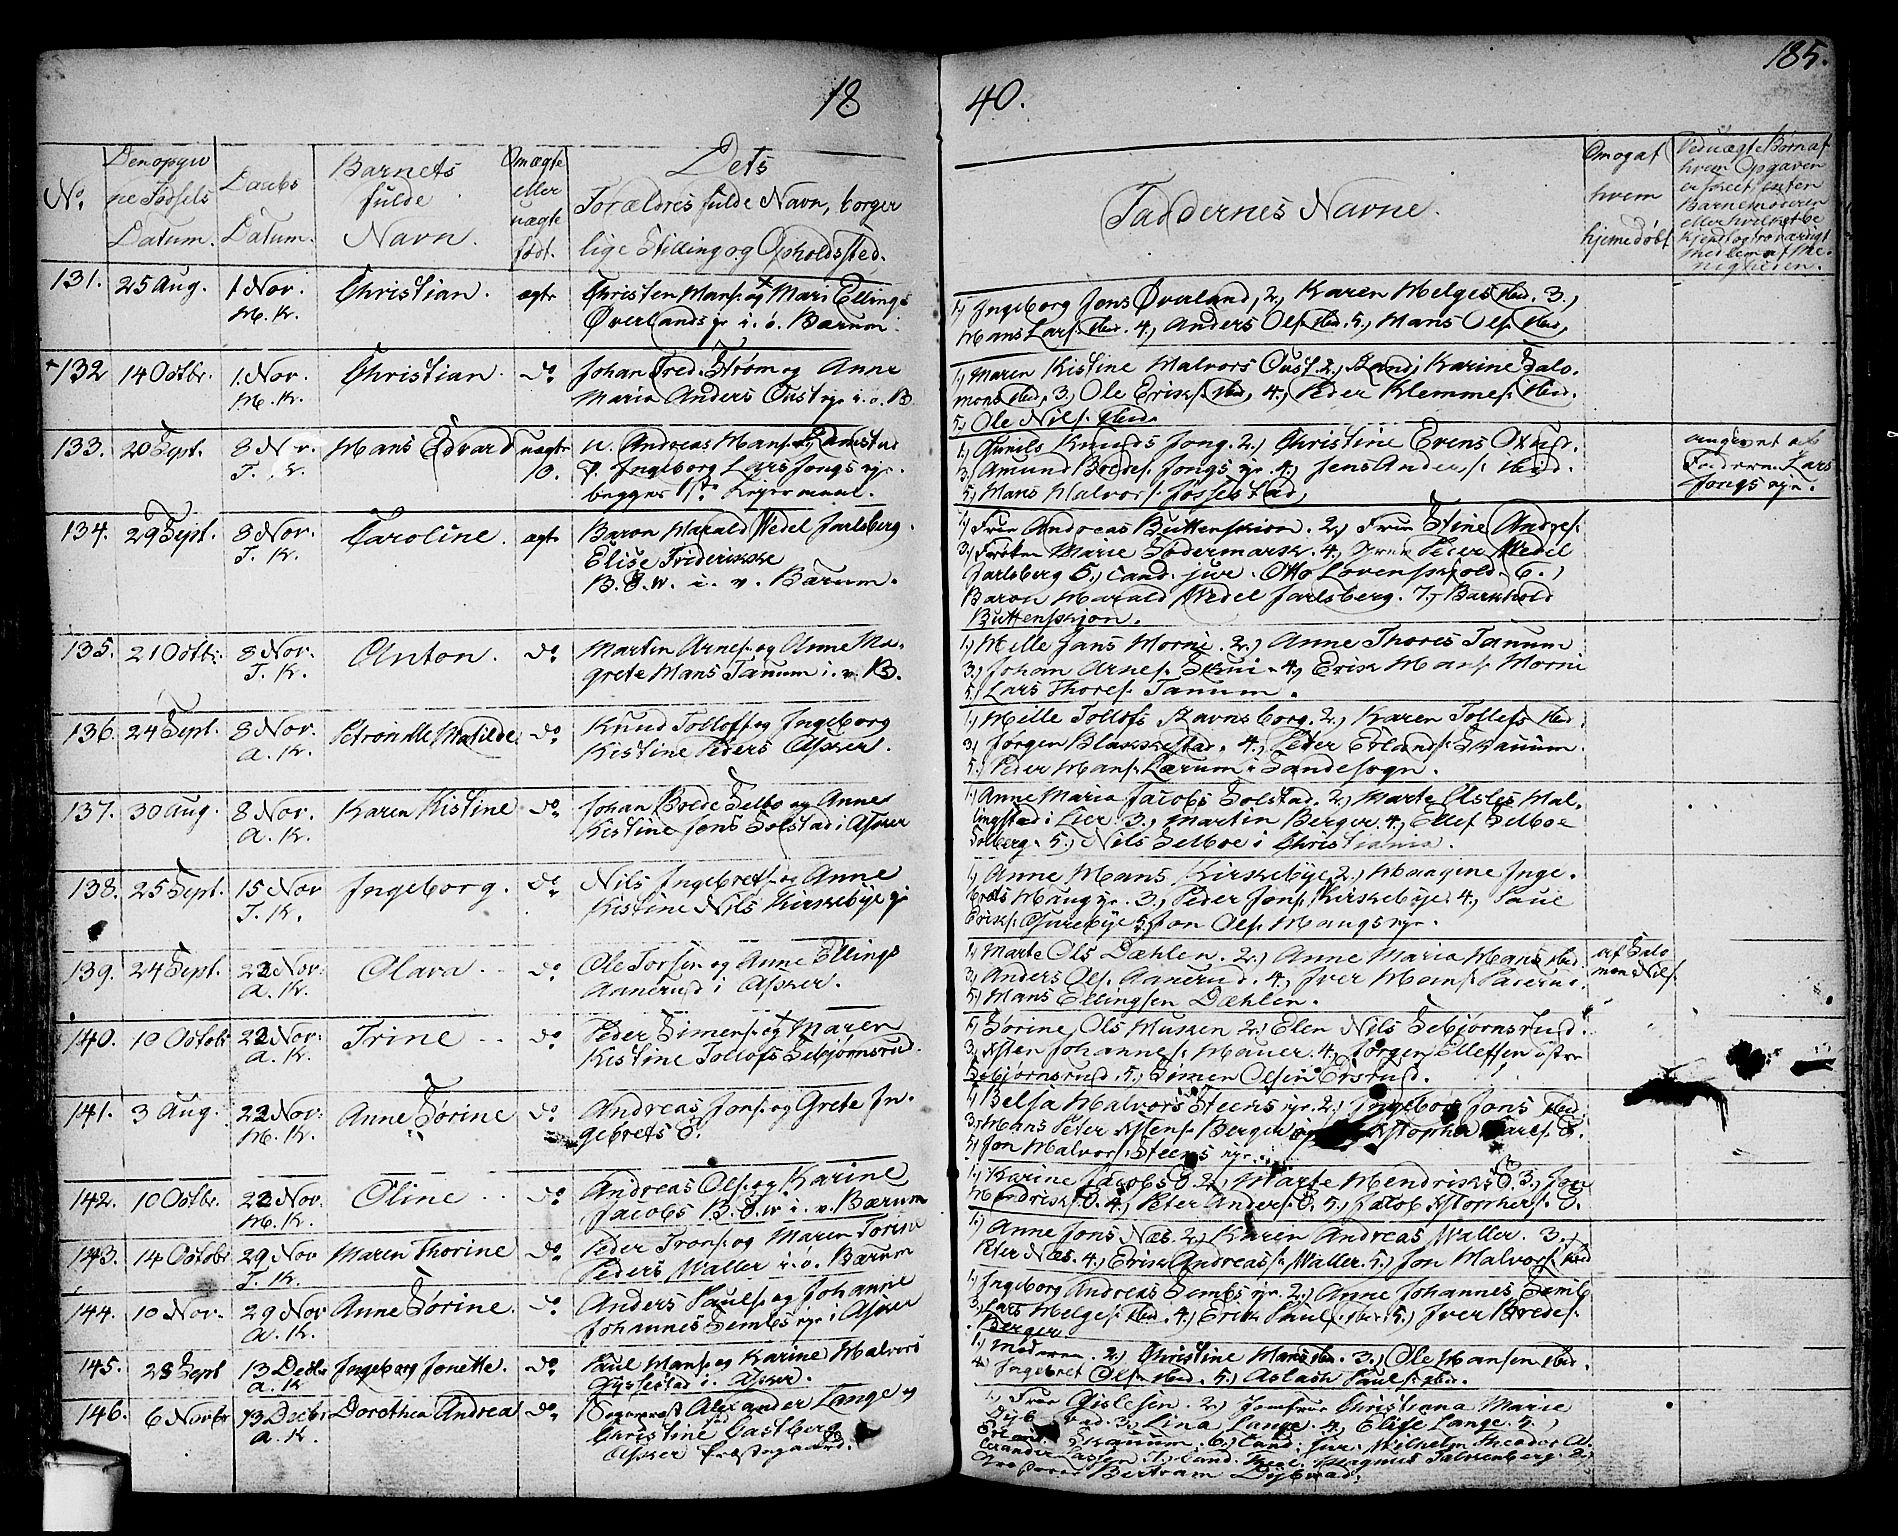 185.
18 40.
No.
Den opgiv
ne Fødsels
Datum.
Daabs
Datum.
Barnets
fulde
Navn.
Om ægte
eller
uægte
født.
Dets
Forældres fulde Navn, borger
lige Stilling og Opholdssted.
Faddernes Navne.
Om og af
hvem
hjemedøbt
Ved uægte Børn af
hvem Opgaven
er skeet, enten
Barnemoderen
eller hvilket be
kjendt og troværdigt
Medlem af Me-
nigheden.
131. 25 Aug. 1 Nov. Christian. ægte
H. K.
Christen Hans. og Mari Ellings
Øverlands ye i. ø. Bærum.
1, Ingeborg Jons Øverland, 2, Karen Helges ibid. 3,
Hans Lars. ibid. 4, Anders Ols. ibid. 5, Hans Ols. ibid,
132 14 Octbr. 1. Nov. Christian. do
H. K.
Johan Fred. Strøm og Anne
Maria Anders Oust ye i. ø. B.
1, Maren Kistine Halvors Oust. 2, Randi Karine Salo-
mons ibid, 3, Ole Eriks. ibid, 4, Peder Klemmes. ibid.
5, Ole Nils. ibid.
133. 20 Sept. 8 Nov. Hans Edvard uægte
T. K. 10.
u. Andreas Hans.
p. Ingeborg Lars Jongs ye.
begges 1ste Leiermaal.
1, Gunild Knuds Jong. 2, Christine Evens
3, Amund Bredes. Jongs ye. 4, Jens Anders. ibid.
5, Hans Halvors. Jossestad,
angivet af
Faderen Lars
Jongs eye.
134. 29 Sept. 8 Nov. Caroline. ægte
T. K.
Baron Harald Wedel Jarlsberg.
Elise Friderikke
B. S. W. i. v. Bærum.
1, Frue Andreas Buttenskion. 2, Frue Stine Andres.
3, Frøken Marie Sødermark. 4, Herr Peter Wedel
Jarlsberg 5, Cand. jur. Otto Løvenskjold. 6,
Baron Harald Wedel Jarlsberg. 7, Barthold
Buttenskjon.
135. 21 Octbr. 8 Nov. Anton. do
T. K.
Martin Arnes. og Anne Ma-
grete Hans Tanum i. v. B.
1, Mille Jans Horni. 2, Anne Thores Tanum
3, Johan Arnes. Skui. 4, Erik Hans. Horni
5, Lars Thores. Tanum.
136. 24 Sept. 8 Nov. Petronille Matilde do
A. K.
Knud Tollofs. og Ingeborg
Kistine Peders Asker.
1, Mille Tollofs Ravnsborg. 2, Karen Tollefs ibid
3, Jørgen Blakkestad. 4, Peder Erlands. Skauum.
5, Peder Hans. Lærum i Sandesogn.
137. 30 Aug. 8 Nov. Karen Kistine do
A. K.
Johan Brede Selbo og Anne
Kistine Jons Solstad i Asker
1, Anne Maria Jacobs Solstad. 2, Marte Olsles Hal-
lingstad i Lier 3, Martin Berger. 4, Ellef Selboe
Solberg. 5, Nils Selboe i Christiania.
138. 25 Sept. 15 Nov Ingeborg. do
T. K.
Nils Ingebrets. og Anne
Kistine Nils Kirkebye ye
1, Anne Hans Kirkebye 2, Maagine Inge-
brets Haug ye. 3, Peder Jons. Kirkebye. 4, Paul
Eriks. Gurebye 5, Jon Ols. Haugs ye.
139. 24 Sept. 22 Nov. Olava. do
A. K.
Ole Torsen og Anne Ellings
Aanerud i Asker.
1, Marte Ols Dæhlen. 2, Anne Maria Hans ibid.
3, Anders Ols. Aanerud. 4, Iver Hans.
5, Hans Ellingsen Dæhlen.
af Salo
mon Nils.
140. 10 Octobr 22 Nov. Trine do
A. K.
Peder Simens. og Maren
Kistine Tollofs Sebjørnsrud.
1, Sørine Ols Husken 2, Elen Nils Sebjørnsrud.
3, Asten Johannes. Hauer. 4, Jørgen Ellefsen østre
Sebjørnsrud. 5, Simen Olsen Eidsrud.
141. 3 Aug. 22 Nov. Anne Sørine do
H. K.
Andreas Jons. og Grete In-
gebrets Ø.
1, Belsa Halvors Steens ye. 2, Ingeborg Jons ibid.
3, Hans Peter Astens. Berger Xstopher Lars. Ø.
5, Jon Halvors. Steens ye.
142. 10 Octobr. 22 Nov. Oline do
H. K.
Andreas Ols. og Karine
Jacobs B. S. W i. v. Bærum
1, Karine Jacobs Ø. 2, Marte Hendriks Ø. 3,
Hendriks. Ø. 4, Peter Anders. Ø. 5, Jacob Xstophers. Ø.
143. 14 Octobr 29 Nov Maren Thorine do
T. K.
Peder Trons. og Maren Torine
Peders Waller i. ø. Bærum
1, Anne Jons Næs. 2, Karen Andreas Waller. 3,
Peter Næs. 4, Erik Andreas. Waller. 5, Jon Halvors. ibid
144. 10 Nov. 29 Nov Anne Sørine. do
A. K.
Anders Pauls. og Johanne
Johannes Sembs ye i Asker
1, Ingeborg Andreas Sembs ye. 2, Anne Johannes Semb
3, Lars Helges. ibid. 4, Erik Pauls. ibid. 5, Iver Bredes.
Berger
145. 28 Sept 13 Decbr Ingeborg Jonette. do
A. K
Paul Hans. og Karine Halvors
Gyssestad i. Asker.
1, Moderen. 2, Christine Hans ibid. 3, Ole Hansen ibid.
4, Ingebret Ols. ibid. 5, Aslak Pauls. ibid.
146. 6 Novbr 13 Decbr Dorothea Andrea do
A. K.
Sogneprest Alexander Lange og
Christine Castberg
Asker Præstegaard.
1, Frue Gislesen. 2, Jomfrue Christianna Marie
Dyb vad. 3, Lina Lange. 4, Elise Lange.
Skauum. 6, Cand. jur. Wilhelm Theodor Al-
exander Lassen 7, Cand. theol. Magnus Falkenberg. 8,
Bertram Dybvad.